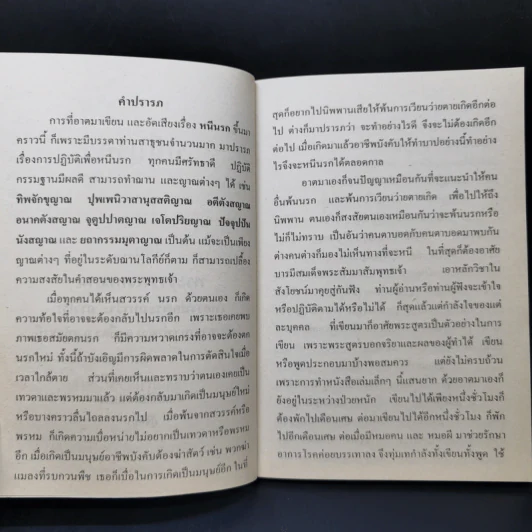 คำปรารภ
การที่อาตมาเขียน และอัดเสียงเรื่อง หนีนรก ขึ้นมา
คราวนี้ ก็เพราะมีบรรดาท่านสาธุชนจำนวนมาก มาปรารภ
เรื่องการปฏิบัติเพื่อหนีนรก ทุกคนมีศรัทธาดี ปฏิบัติ
กรรมฐานมีผลดี สามารถทำฌาน และญาณต่างๆ ได้ เช่น
ทิพจักขุญาณ ปุพเพนิวาสานุสสติญาณ อตีตังสญาณ
อนาคตังสญาณ จุตูปปาตญาณ เจโตปริยญาณ ปัจจุปปัน
นังสญาณ และ ยถากรรมมุตาญาณ เป็นต้น แม้จะเป็นเพียง
ญาณต่างๆ ที่อยู่ในระดับฌานโลกีย์ก็ตาม ก็สามารถเปลื้อง
ความสงสัยในคำสอนของพระพุทธเจ้า
เมื่อทุกคนได้เห็นสวรรค์ นรก ด้วยตนเอง ก็เกิด
ความท้อใจที่อาจจะต้องกลับไปนรกอีก เพราะเธอเคยพบ
ภาพเธอสมัยตกนรก ก็มีความหวาดเกรงที่อาจจะต้องตก
นรกใหม่ ทั้งนี้ถ้าบังเอิญมีการผิดพลาดในการตัดสินใจเมื่อ
เวลาใกล้ตาย ส่วนที่เคยเห็นและทราบว่าตนเองเคยเป็น
เทวดาและพรหมมาแล้ว แต่ต้องกลับมาเกิดเป็นมนุษย์ใหม่
หรือบางคราวลื่นไถลลงนรกไป เมื่อพ้นจากสวรรค์หรือ
พรหม ก็เกิดความเบื่อหน่ายไม่อยากเป็นเทวดาหรือพรหม
อีก เมื่อเกิดเป็นมนุษย์อาชีพบังคับต้องฆ่าสัตว์ เช่น พวกฆ่า
แมลงที่รบกวนพืช เธอก็เบื่อในการเกิดเป็นมนุษย์อีก ในที่
สุดก็อยากไปนิพพานเสียให้พ้นการเวียนว่ายตายเกิดอีกต่อ
ไป ต่างก็มาปรารภว่า จะทำอย่างไรดี จึงจะไม่ต้องเกิดอีก
ต่อไป เมื่อเกิดมาแล้วอาชีพบังคับให้ทำบาปอย่างนี้ทำอย่าง
ไรจึงจะหนีนรกได้ตลอดกาล
อาตมาเองก็จนปัญญาเหมือนกันที่จะแนะนำให้คน
อื่นพ้นนรก และพ้นการเวียนว่ายตายเกิด เพื่อไปให้ถึง
นิพพาน ตนเองก็สงสัยตนเองเหมือนกันว่าจะพ้นนรกหรือ
ไม่ก็ไม่ทราบ เป็นอันว่าคนตาบอดกับคนตาบอดมาพบกัน
ต่างคนต่างก็มองไม่เห็นทางที่จะหนี ในที่สุดก็ต้องอาศัย
บารมีสมเด็จพระสัมมาสัมพุทธเจ้า เอาหลักวิชาใน
สังโยชน์มาคุยสู่กันฟัง ท่านผู้อ่านหรือท่านผู้ฟังจะเข้าใจ
หรือปฏิบัติตามได้หรือไม่ได้ ก็สุดแล้วแต่กำลังใจของแต่
ละบุคคล ที่เขียนมาก็อาศัยพระสูตรเป็นตัวอย่างในการ
เขียน เพราะพระสูตรบอกจริยาและผลของผู้ทำได้ เขียน
หรือพูดประกอบมาบ้างพอสมควร แต่ยังไม่ครบถ้วน
เพราะการทำหนังสือเล่มเล็กๆ นี้แสนยาก ด้วยอาตมาเองก็
ยังอยู่ในระหว่างป่วยหนัก เขียนไปได้เพียงหนึ่งชั่วโมง ก็
ต้องพักไปเดือนเศษ ต่อมาเขียนไปได้อีกหนึ่งชั่วโมง ก็พัก
ไปอีกเดือนเศษ ต่อเมื่อมีหมอคน และ หมอผี มาช่วยรักษา
อาการโรคค่อยบรรเทาลง จึงทุ่มเทกำลังทั้งเขียนทั้งพูด ใช้